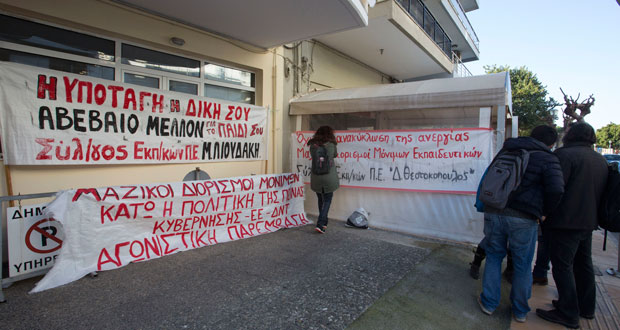 Η ΥΠΟΤΑΓΗ Η ΔΙΚΗ ΣΟΥ
ΑΒΕΒΑΙΟ ΜΕΛΛΟΝ ΤΟ ΠΑΙΔΙ ΣΟΥ
ΣΥΛ/γος ΕΚΠ/ΚΩΝ ΠΕ Μ.ΠΛΟΥΔΑΚΗ
ΜΑΖΙΚΟΙ ΔΙΟΡΙΣΜΟΙ ΜΟΝΙΜΩΝ
ΚΑΤΩ Η ΠΟΛΙΤΙΚΗ ΤΗΣ ΠΕΙΝΑΣ
ΚΥΒΕΡΝΗΣΗΣ-ΕΕ-ΔΝΤ
ΑΓΩΝΙΣΤΙΚΗ ΠΑΡΕΜΒΑΣΗ
ανακύκλωση της ανεργίας
διορισμοί Μόνιμων Εκπαιδευτικών
Εκπ/κων Π.Ε. "Δ.Θεοτοκόπουλος"
ΔΗΜ
P
ΥΠΗΡΕ